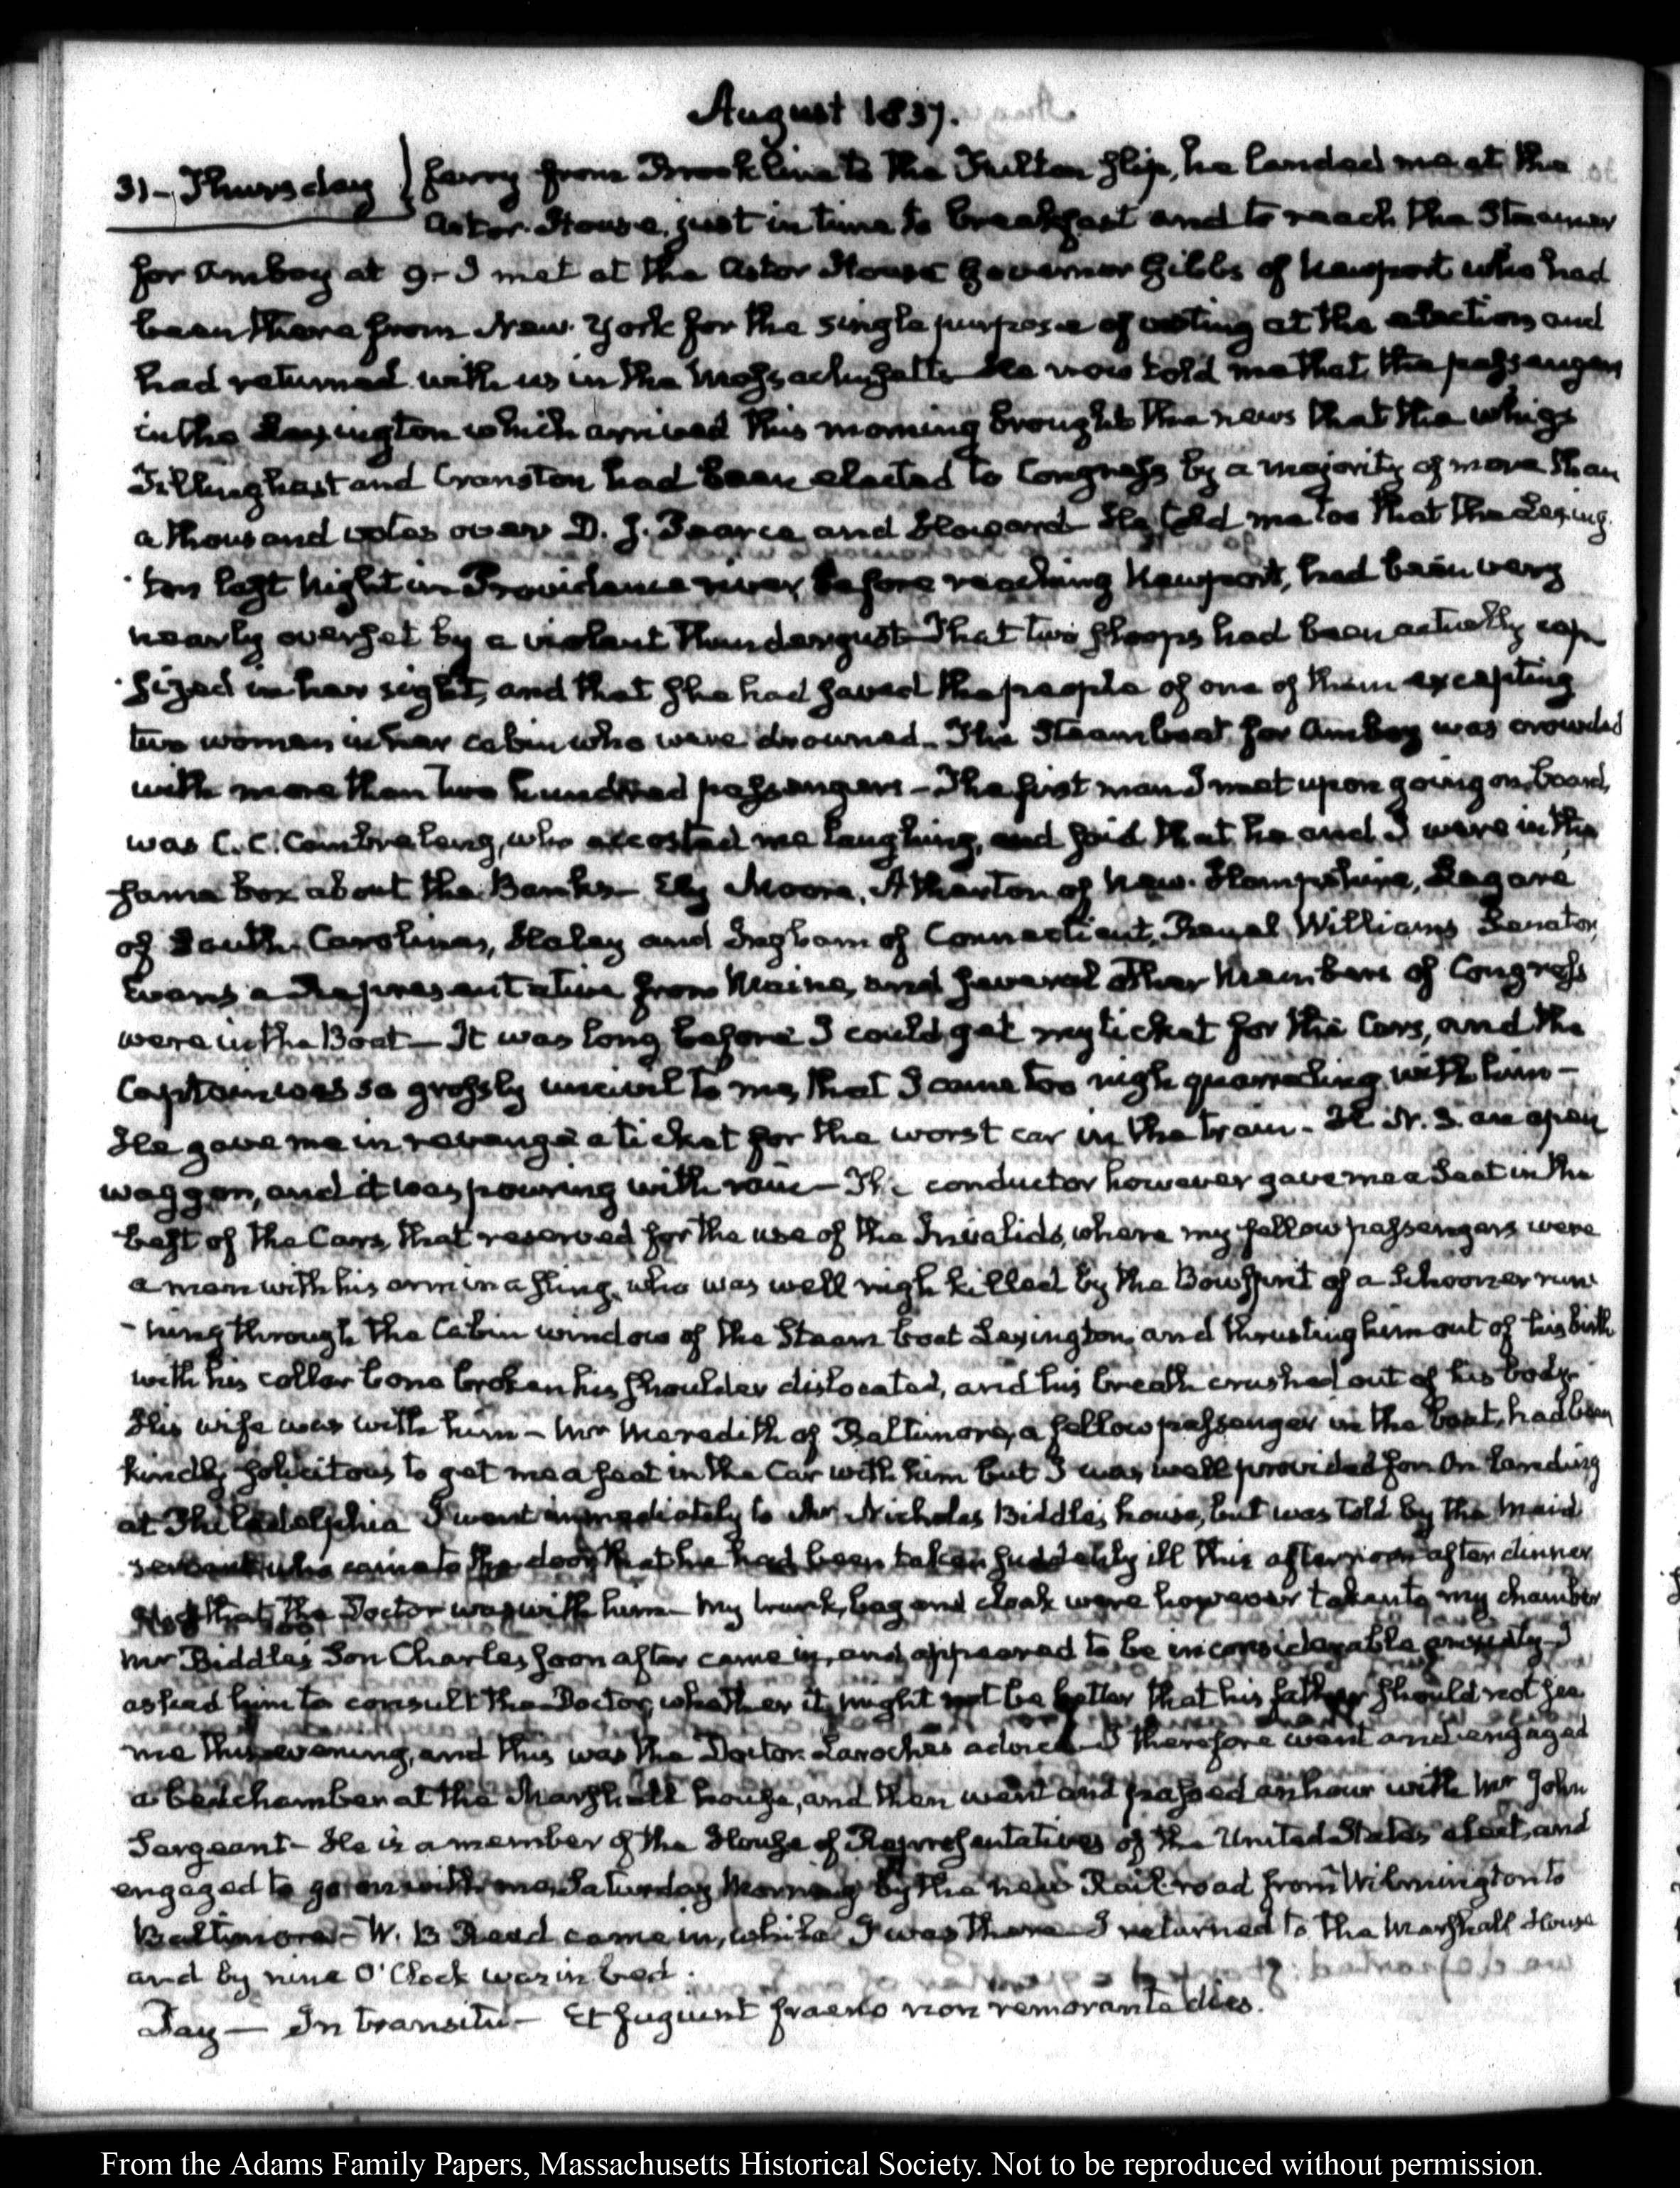 August 1837.
31 – Thursday } ferry from Brookline to the Fulton slip, he landed me at the
Astor House, just in time to breakfast and to reach the Steamer
for Amboy at 9 – I met at the Astor House Governor Gibbs of Newport who had
been there from New York for the single purpose of voting at the election and
had returned with us in the Massachusetts – He now told me that the passengers
in the Lexington which arrived this morning brought the news that the whigs
Tillinghast and Cranston had been elected to Congress by a majority of more than
a thousand votes over D. J. Pearce and Howard – He told me too that the Lexing-
-ton last Night in Providence river, before reaching Newport, had been very
nearly overset by a violent Thundergust – That two sloops had been actually cap
-sized in her sight, and that she had saved the people of one of them excepting
two women in her cabin who were drowned – The Steamboat for Amboy was crowded
with more than two hundred passengers – The first man I met upon going on board,
was C. C. Cambreleng, who accosted me laughing, and said that he and I were in the
same box about the Banks – Ely Moore, Atherton of New Hampshire, Legare
of South Carolina, Haley and Ingham of Connecticut, Reuel Williams Senator,
Evans a Representative from Maine, and several other Members of Congress
were in the Boat – It was long before I could get my ticket for the Cars, and the
Captain was so grossly uncivil to me, that I came too nigh quarreling with him –
He gave me in revenge a ticket for the worst car in the train – H. N. 3. an open
waggon, and it was pouring with rain – The conductor however gave me a Seat in the
best of the Cars, that reserved for the use of the Invalids, where my fellow passengers were
a man with his arm in a sling, who was well nigh killed by the Bowsprit of a Schooner run
-ning through the Cabin window of the Steam boat Lexington, and thrusting him out of his birth
with his collar bone broken his shoulder dislocated, and his breath crushed out of his body.
His wife was with him – Mr Meredith of Baltimore, a fellow passenger in the boat, had been
kindly solicitous to get me a seat in the Car with him but I was well provided for. On landing
at Philadelphia I went immediately to Mr Nicholas Biddle's house, but was told by the Maid
servant who came to the door that he had been taken suddenly ill this afternoon after dinner
and that the Doctor was with him – My trunk, bag and cloak were however taken to my chamber
Mr Biddle's Son Charles, soon after came in, and appeared to be in considerable anxiety – I
asked him to consult the Doctor, whether it might not be better that his father should not see
me this evening, and this was the Doctor Laroche's advice – I therefore went and engaged
a bedchamber at the Marshall house, and then went and passed an hour with Mr John
Sergeant – He is a member of the House of Representatives of the United States elect, and
engaged to go on with me, Saturday Morning by the new Rail-road from Wilmington to
Baltimore – W. B Read came in, while I was there – I returned to the Marshall House
and by nine O'Clock was in bed.
Day – In transitu – Et fugiunt fraeno non remorante dies.
From the Adams Family Papers, Massachusetts Historical Society. Not to be reproduced without permission.